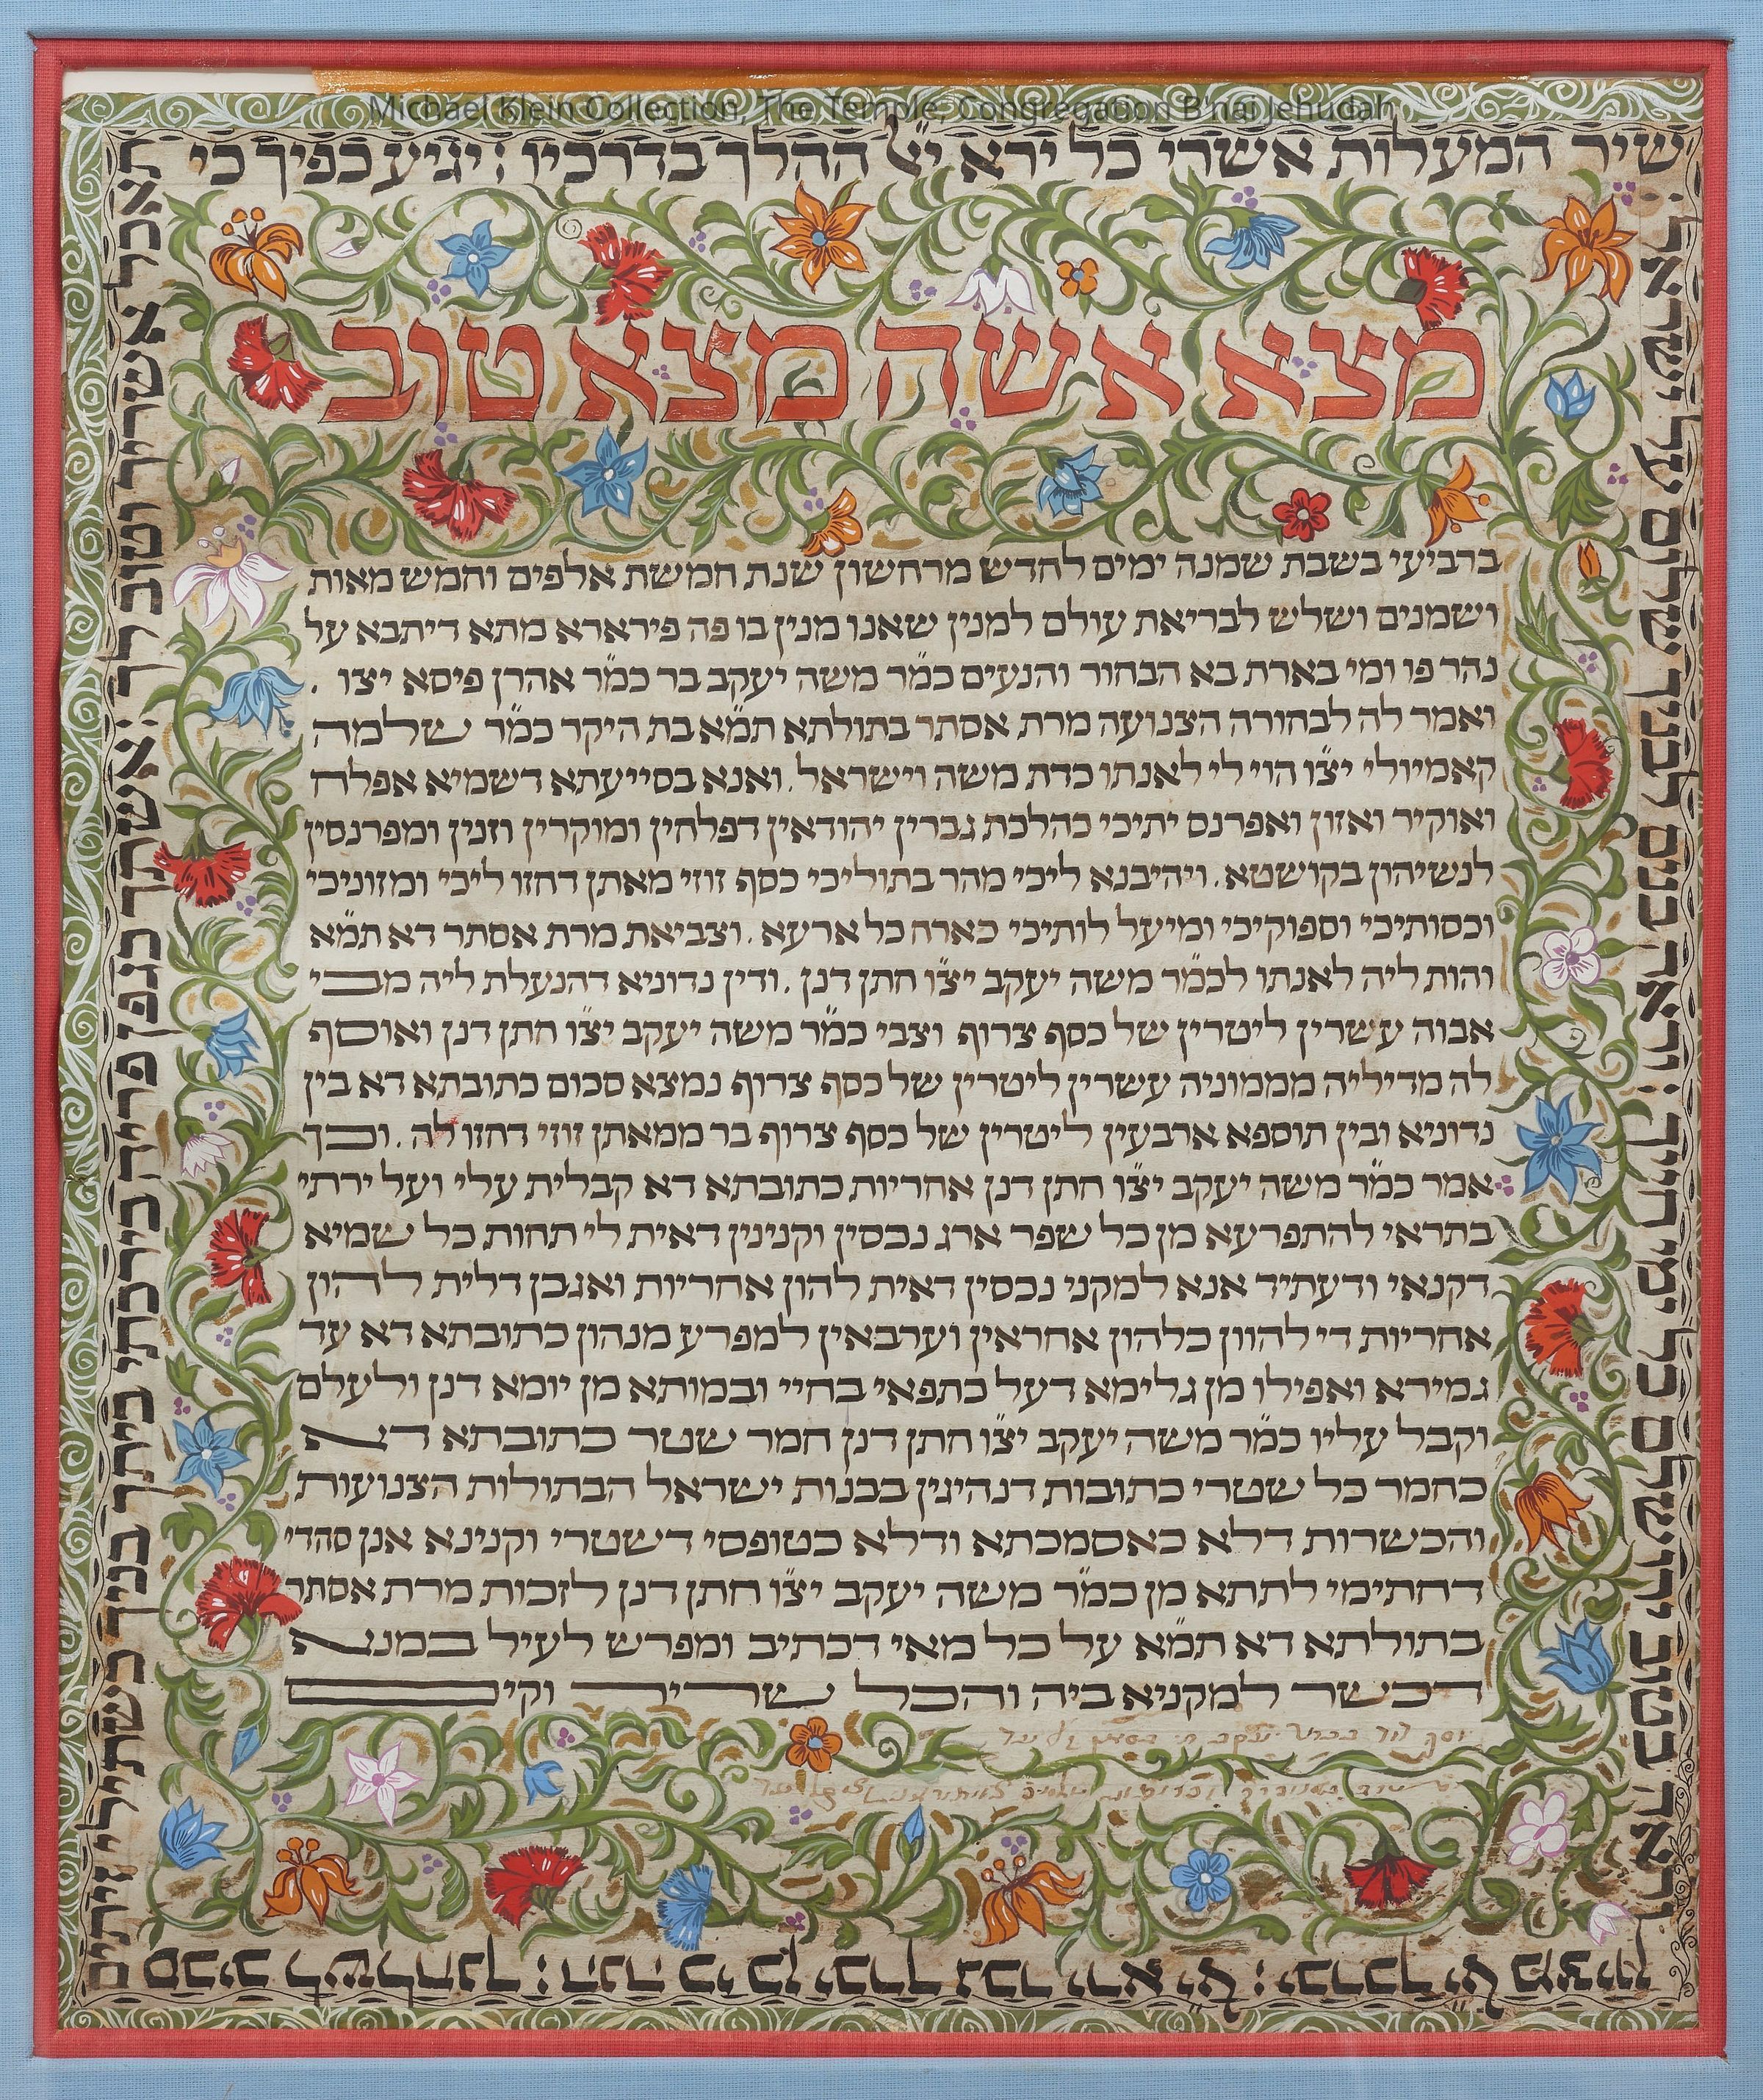 Michael Klein Collection, The Temple, Congregation B'nai Jehudah
שיר המעלות אשרי כל ירא יי ההלך בדרכיו : יגיע כפיך כי
תאכל אשריך וטוב לך : אשתך כגפן פריה בירכתי ביתך בניך כשתילי זיתים
סביב לשלחנך : הנה כי כן יברך גבר ירא יי : יברכך יי מציון
וראה בטוב ירושלם כל ימי חייך : וראה בנים לבניך שלום על ישראל :
מצא אשה מצא טוב
ברביעי בשבת שמנה ימים לחדש מרחשון שנת חמשת אלפים וחמש מאות
ושמנים ושלש לבריאת עולם למנין שאנו מנין בו פה פירארא מתא דיתבא על
נהר פו ומי בארת בא הבחור והנעים כמ״ר משה יעקב בר כמ״ר אהרן פיסא יצו .
ואמר לה לבחורה הצנועה מרת אסתר בתולתא תמ״א בת היקר כמ״ר שלמה
קאמיולי יצ״ו הוי לי לאנתו כדת משה וישראל . ואנא בסייעתא דשמיא אפלח
ואוקיר ואזון ואפרנס יתיכי כהלכת גברין יהודאין דפלחין ומוקרין וזנין ומפרנסין
לנשיהון בקושטא . ויהיבנא ליכי מהר בתוליכי כסף זוזי מאתן דחזו ליכי ומזוניכי
וכסותיכי וספוקיכי ומיעל לותיכי כארח כל ארעא . וצביאת מרת אסתר דא תמ״א
והות ליה לאנתו לכמ״ר משה יעקב יצ״ו חתן דנן . ודין נדוניא דהנעלת ליה מבי
אבוה עשרין ליטרין של כסף צרוף וצבי כמ״ר משה יעקב יצ״ו חתן דנן ואוסף
לה מדיליה מממוניה עשרין ליטרין של כסף צרוף נמצא סכום כתובתא דא בין
נדוניא ובין תוספא ארבעין ליטרין של כסף צרוף בר ממאתן זוזי דחזו לה . וכך
אמר כמ״ר משה יעקב יצ״ו חתן דנן אחריות כתובתא דא קבלית עלי ועל ירתי
בתראי להתפרעא מן כל שפר ארג נכסין וקנינין דאית לי תחות כל שמיא
דקנאי ודעתיד אנא למקני נכסין דאית להון אחריות ואגבן דלית להון
אחריות די להוון כלהון אחראין וערבאין למפרע מנהון כתובתא דא עד
גמירא ואפילו מן גלימא דעל כתפאי בחיי ובמותא מן יומא דנן ולעלם
וקבל עליו כמ״ר משה יעקב יצ״ו חתן דנן חמר שטר כתובתא דא
כחמר כל שטרי כתובות דנהיגין בבנות ישראל הבתולות הצנועות
והכשרות דלא כאסמכתא ודלא כטופסי דשטרי וקנינא אנן סהדי
דחתימי לתתא מן כמ״ר משה יעקב יצ״ו חתן דנן לזכות מרת אסתר
בתולתא דא תמ״א על כל מאי דכתיב ומפרש לעיל במנא
דכשר למקניא ביה והכל שריר וקים